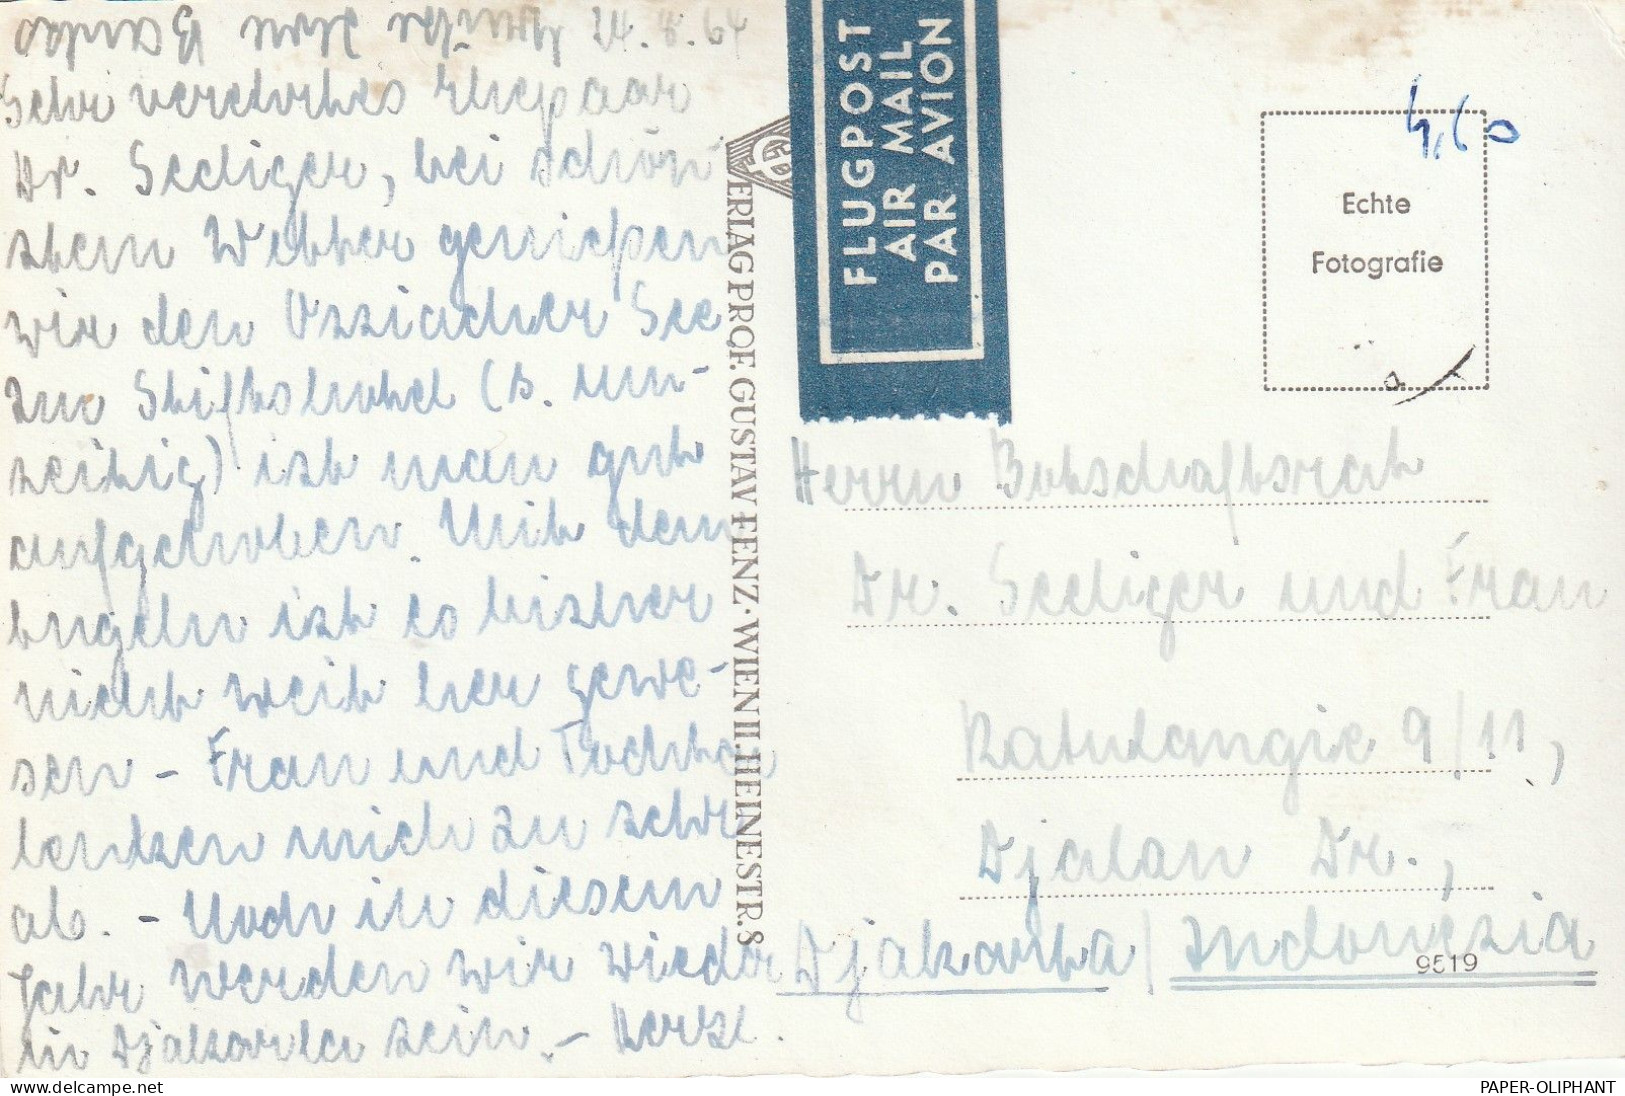 24.8.64
Sehr verehrtes Ehepaar
Dr. Seeliger, bei schön-
stem Wetter genießen
wir den Ossiacher See
Im Stiftshotel (B. um-
seitig) ist man gut
aufgehoben. Mit dem
bugeln ist es bisher
nicht weit her gewe-
sen - Frau und Tochter
lenken mich zu sehr
ab. - Noch in diesem
Jahr werden wir wieder
in Djakarta sein. - Herzl.
VERLAG PROF. GUSTAV FENZ · WIEN II. HEINESTR. 8
FLUGPOST
AIR MAIL
PAR AVION
4,60
Echte
Fotografie
Herrn Botschaftsrat
Dr. Seeliger und Frau
Ratulangie 9/11,
Djalan Dr.,
Djakarta / Indonesia
9519
PAPER-OLIPHANT
delcampe.net